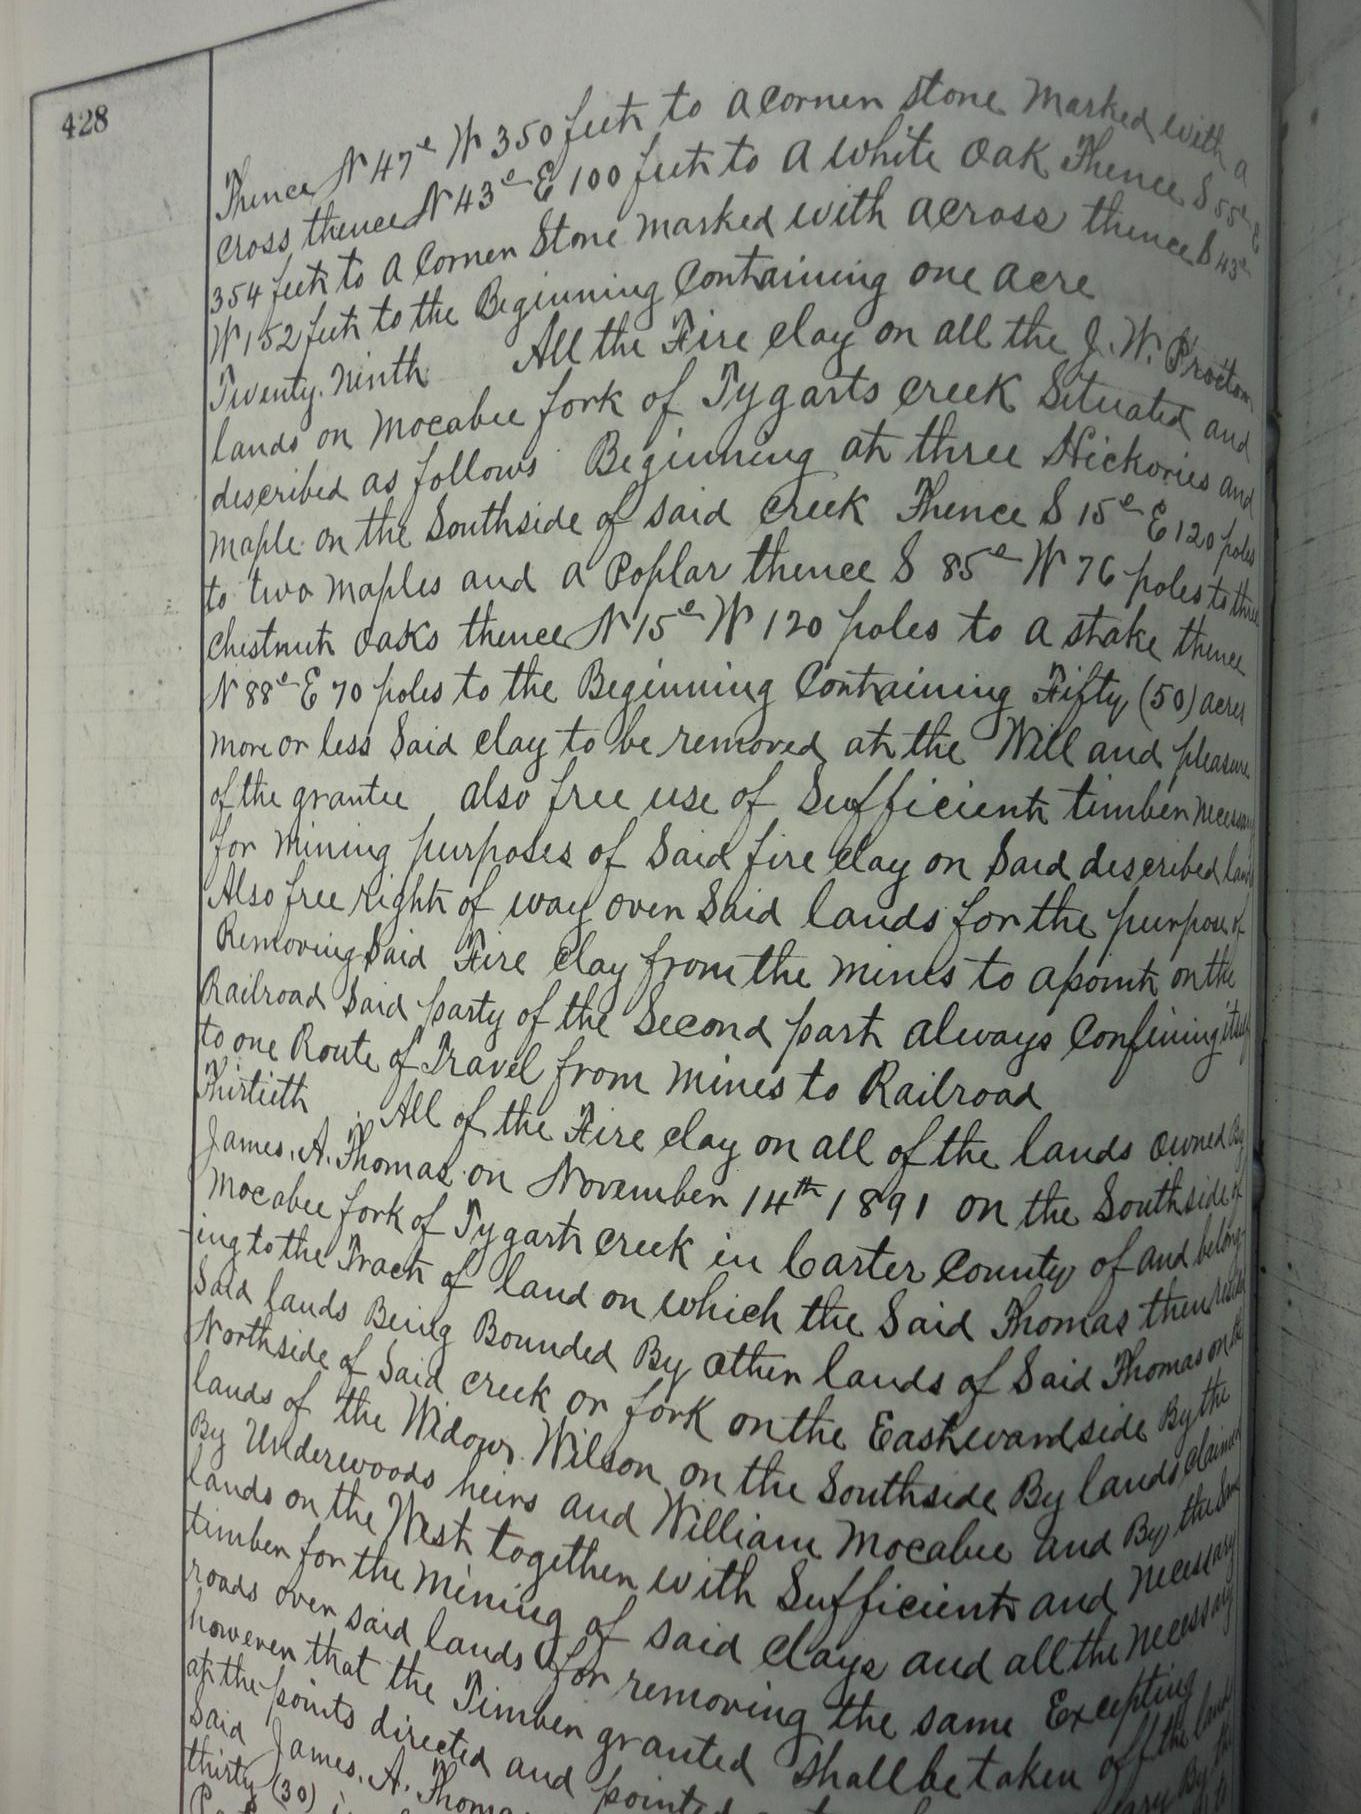 428
Thence N 47° W 350 feet to a corner stone marked with a
cross thence N 43° E 100 feet to a white oak Thence S 55° E
354 feet to a Corner Stone marked with a cross thence S 43°
W 152 feet to the Beginning Containing one acre
Twenty. Ninth All the Fire clay on all the J. W. Proctor
lands on Mocabee fork of Tygarts creek Situated and
described as follows Beginning at three Hickories and
maple on the Southside of said creek Thence S 15° E 120 poles
to two maples and a Poplar thence S 85° W 76 poles to three
chestnut oaks thence N 15° W 120 poles to a stake thence
N 88° E 70 poles to the Beginning Containing Fifty (50) acres
more or less Said clay to be removed at the Will and pleasure
of the grantee also free use of Sufficient timber necessary
for mining purposes of Said fire clay on Said described land
Also free right of way over Said lands for the purpose of
Removing Said Fire clay from the mines to a point on the
Railroad Said party of the Second part always Confining itself
to one Route of Travel from mines to Railroad
Thirtieth All of the Fire clay on all of the lands owned By
James. A. Thomas on November 14th 1891 on the Southside of
Mocabee fork of Tygart creek in Carter County of and belong-
ing to the Tract of land on which the Said Thomas then resided
Said lands Being Bounded By other lands of Said Thomas on the
Northside of Said creek or fork on the Eastward side By the
lands of the Widow Wilson on the Southside By lands claimed
By Underwoods heirs and William Mocabee and By the Same
lands on the West together with Sufficient and necessary
timber for the mining of said clays and all the necessary
roads over said lands for removing the same Excepting
however that the Timber granted shall be taken off the land
at the points directed and pointed By the
Said James. A. Thomas
thirty (30)